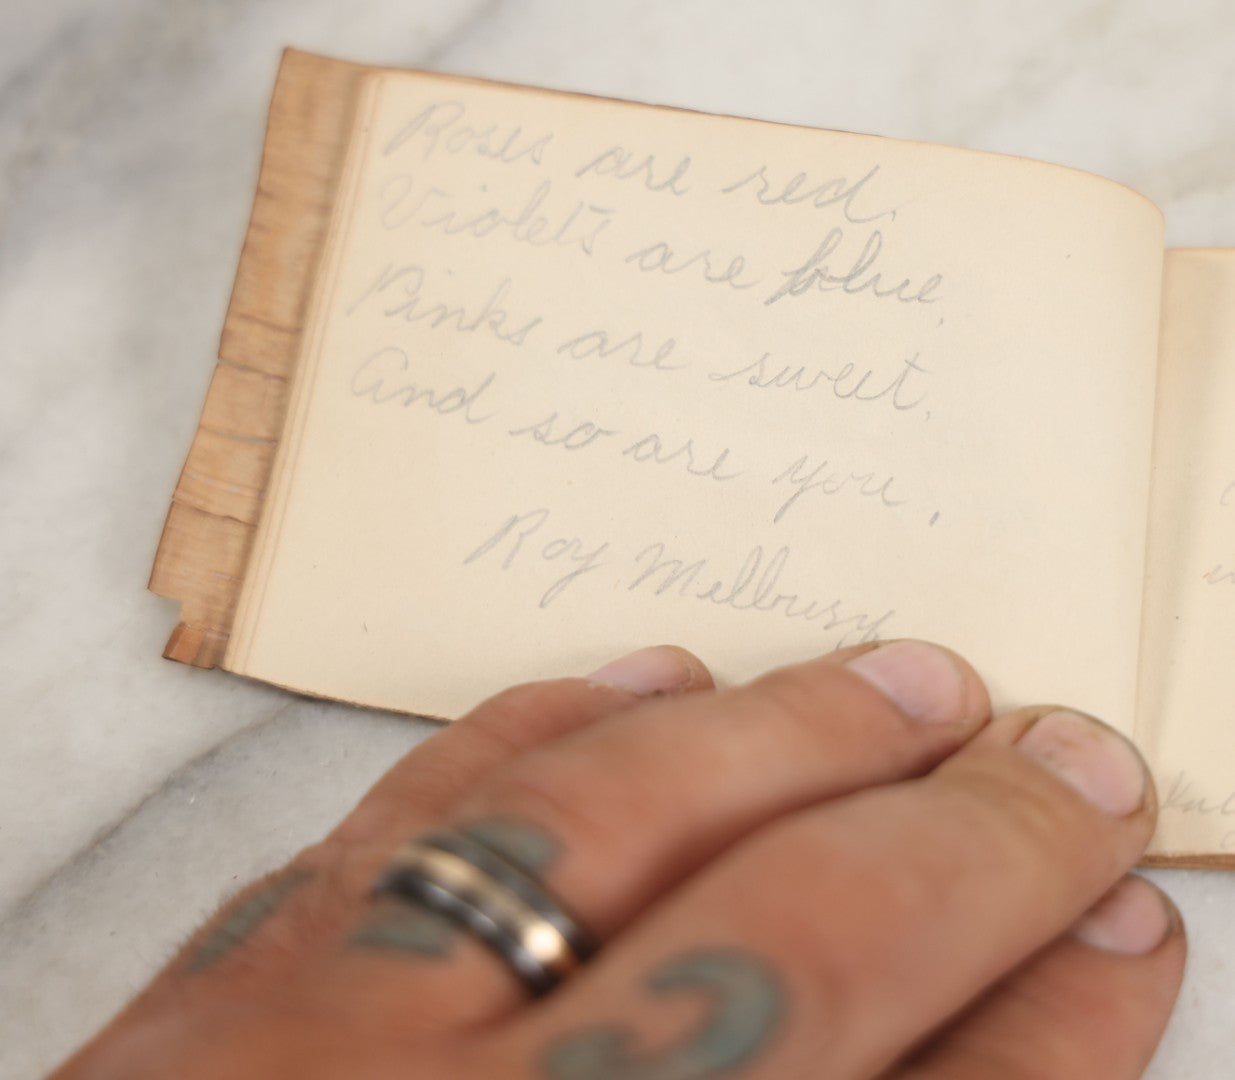 Roses are red.
Violets are blue.
Pinks are sweet.
And so are you.
Roy Melbury